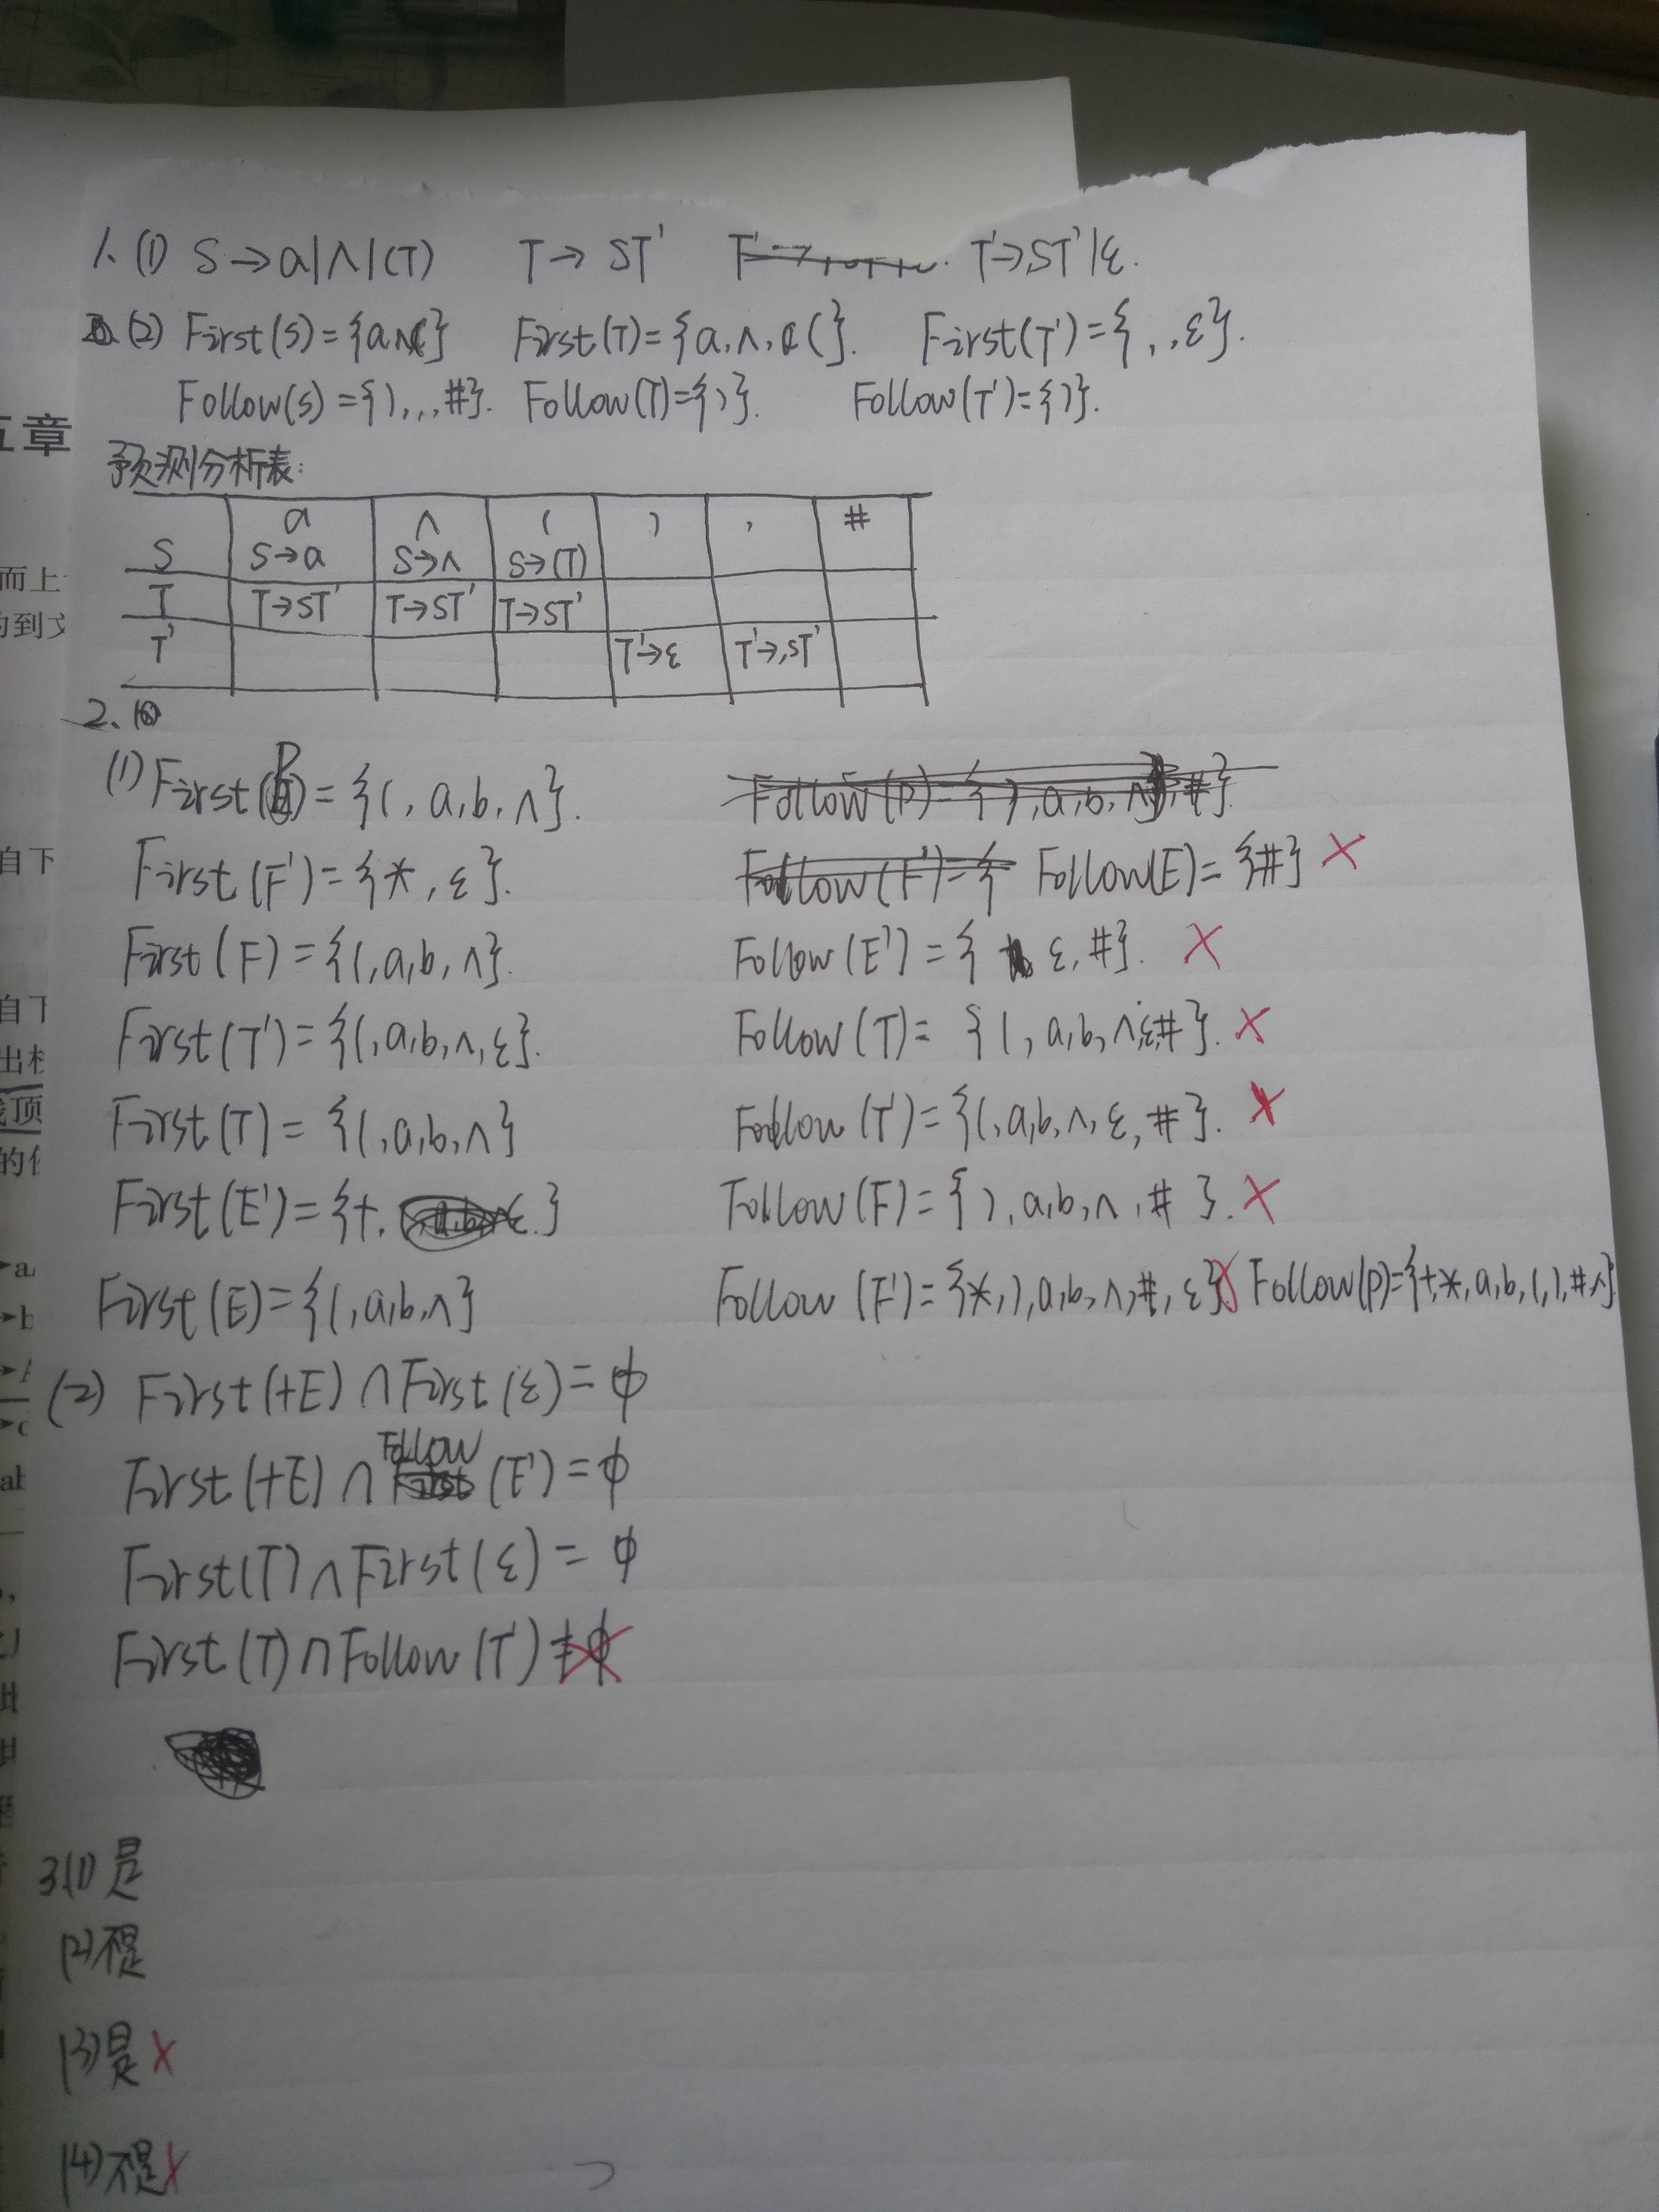 1. (1) S→a|∧|(T)  T→ST'  T'→,ST'|ε.
(2) First(S)={a,∧,(}  First(T)={a,∧,(}.  First(T')={,,ε}.
Follow(S)={),,,#}.  Follow(T)={)}.  Follow(T')={)}.
五章
预测分析表:
a ∧ ( ) , #
S S→a S→∧ S→(T)
T T→ST' T→ST' T→ST'
T' T'→ε T'→,ST'
而上
的到文
2.
(1) First(P)={(,a,b,∧}.  Follow(P)={),a,b,∧,#}.
First(F')={*,ε}.  Follow(F')={ Follow(E)={#} ×
自下
First(F)={(,a,b,∧}.  Follow(E')={ε,#}. ×
自下
First(T')={(,a,b,∧,ε}.  Follow(T)={(,a,b,∧,ε,#}. ×
栈顶
First(T)={(,a,b,∧}  Follow(T')={(,a,b,∧,ε,#}. ×
的
First(E')={+,ε.}  Follow(F)={),a,b,∧,#}. ×
First(E)={(,a,b,∧}  Follow(F')={*,),a,b,∧,#,ε}× Follow(P)={+,*,a,b,(,),#,∧}
(2) First(+E)∩First(ε)=φ
First(+E)∩Follow(E')=φ
First(T)∩First(ε)=φ
First(T)∩Follow(T')≠φ ×
3.(1)是
(2)不是
(3)是×
(4)不是×